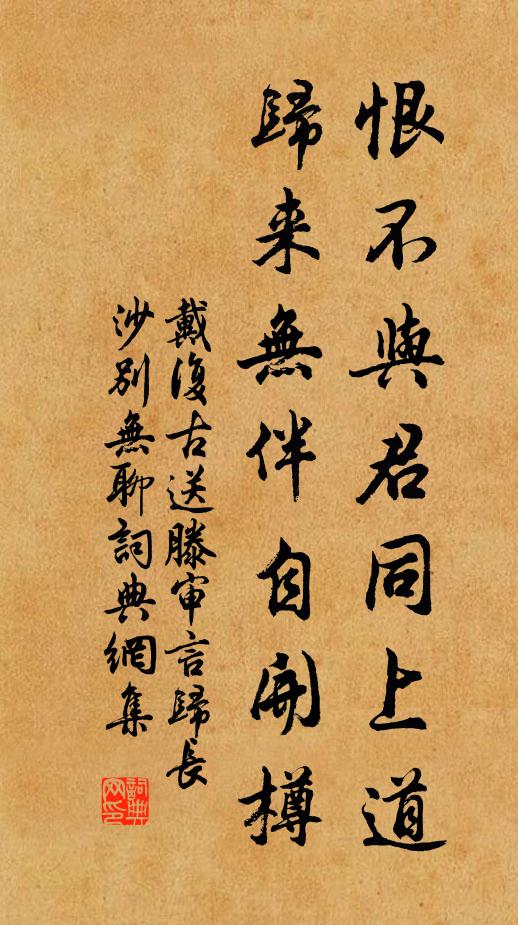 恨不與君同上道
歸来無伴自開樽
戴復古送滕审言歸長
沙别無聊詞典網集
詞典网印